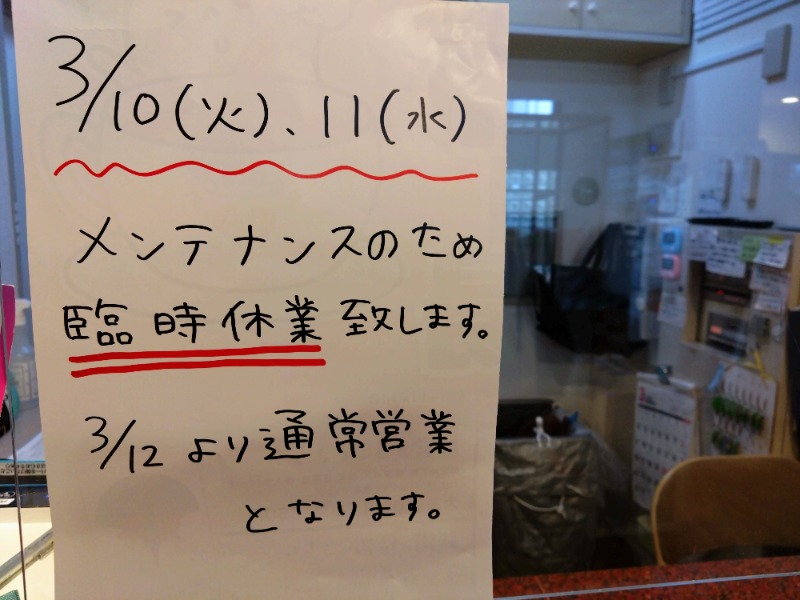 3/10(火)、11(水)
メンテナンスのため
臨時休業致します。
3/12より通常営業
となります。